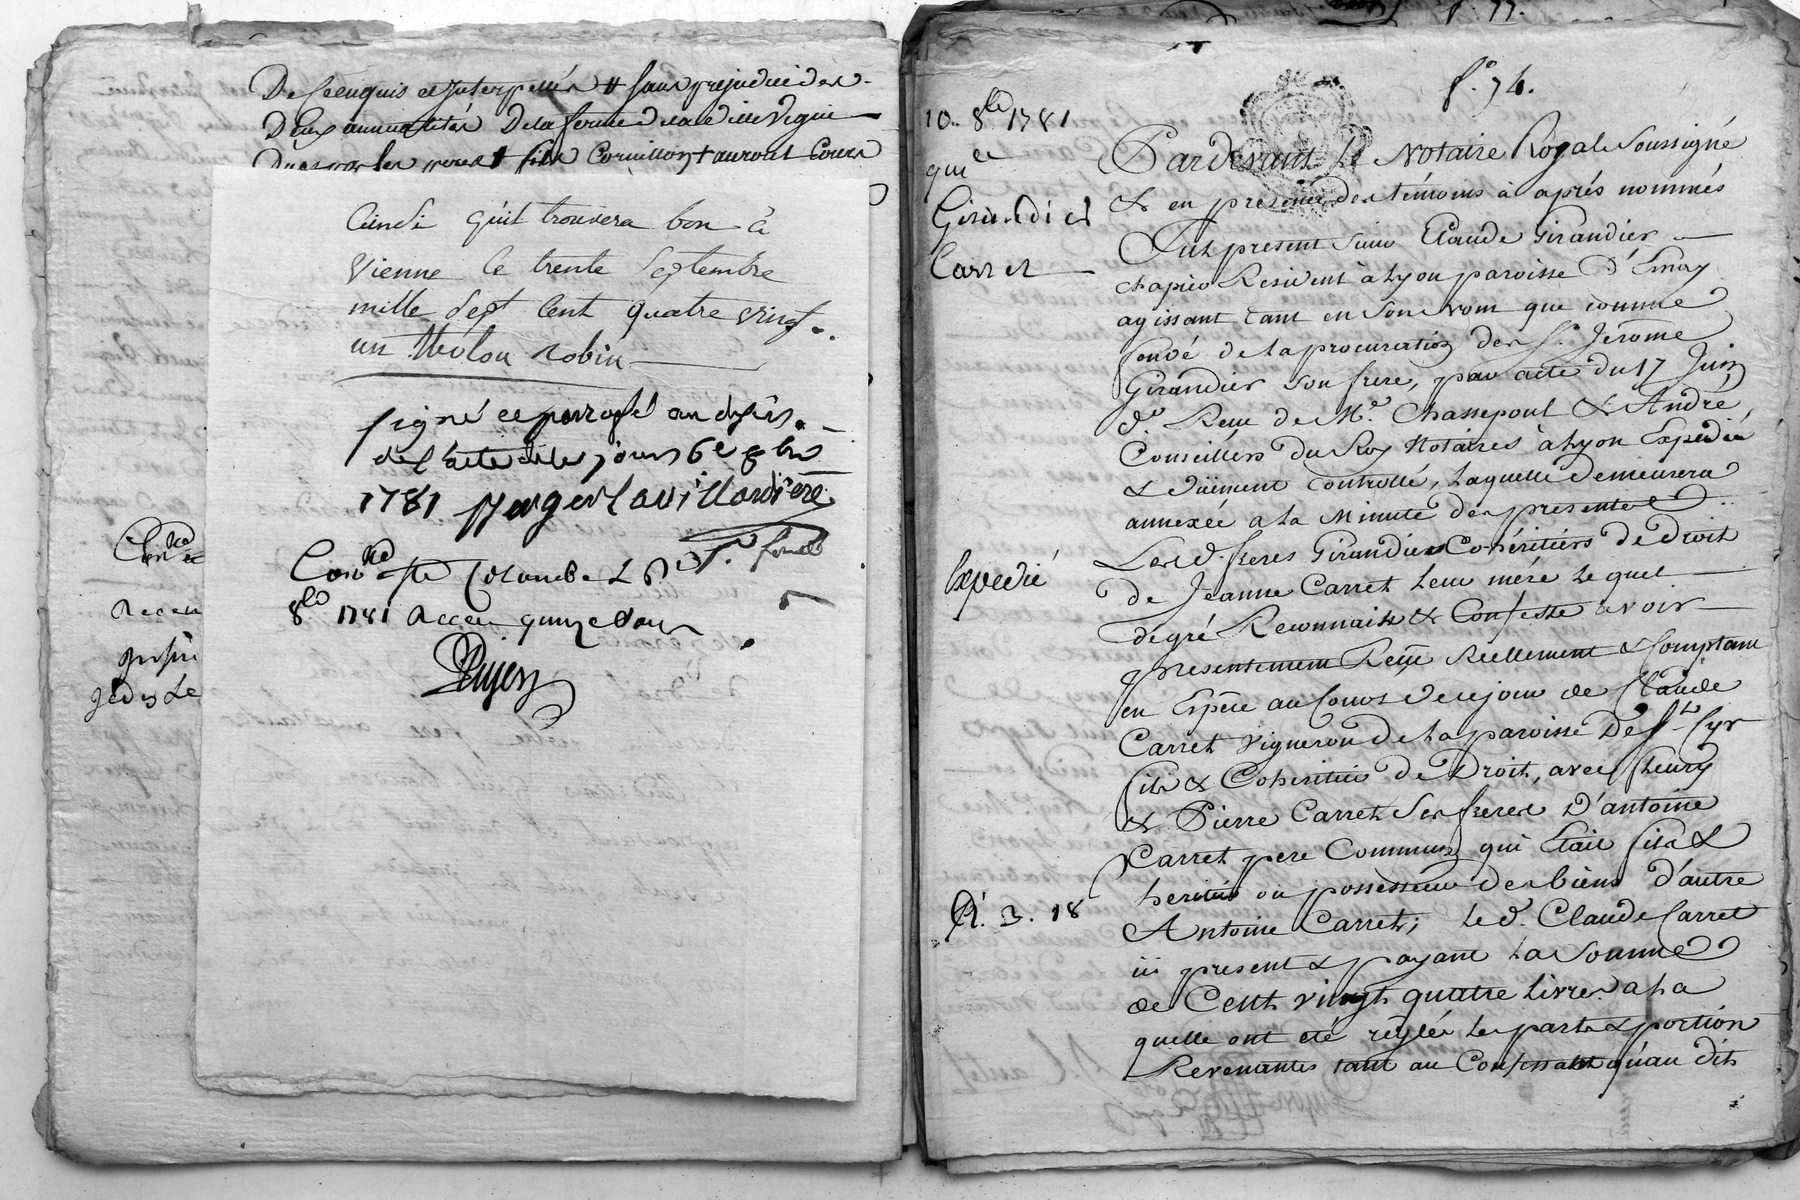 De ce enquis et interpellés # sans prejudice des
Deux annualités De la ferme de la dite Vigne
les peres & fils Cornillon + auront Cours
ainsi qu'il trouvera bon à
Vienne le trente Septembre
mille Sept Cent quatre vingt
un Théolon Robin
signé et parraphé au désir
de l'acte de ce jour 6e 8bre
1781
Conlé Ste Colombe L
8bre 1781 Receu quinze sous
Receu
f.° 77.
f.° 74.
10. 8bre 1781
qu.ce
Girandier
Carret
Expedié
Ct. 3. 18
Pardevant le Notaire Royal Soussigné
& en presence des temoins ci aprés nommés
Fut present sieur Claude Girandier
chapier Résident à Lyon paroisse D'Ainay
agissant tant en Son nom que comme
fondé de la procuration de s.r Jérome
Girandier son frere, par acte du 17 Juin
d.r Recu de M.e Chassepout & André,
Conseillers du Roy Notaires à Lyon Expedié
& düement Controllé, Laquelle demeurera
annexée a la Minute des presentes
Les d. freres Girandier Cohéritiers de Droit
de Jeanne Carret leur mére le quel
de gré Reconnait & Confesse avoir
presentement Reçu Réellement & Comptant
en Espèce au Cours de ce jour de Claude
Carret Vigneron de la paroisse De St. Cyr
fils & Coheritier de Droit, avec Fleury
& Pierre Carret Ses freres D'antoine
Carret pere Commun qui Etait fils &
heritier ou possesseur des biens d'autre
Antoine Carret; le d. Claude Carret
ici present & payant la Somme
de Cent vingt quatre livres a la
quelle ont été réglée les parts & portion
Revenantes tant au Confessant qu'au dit